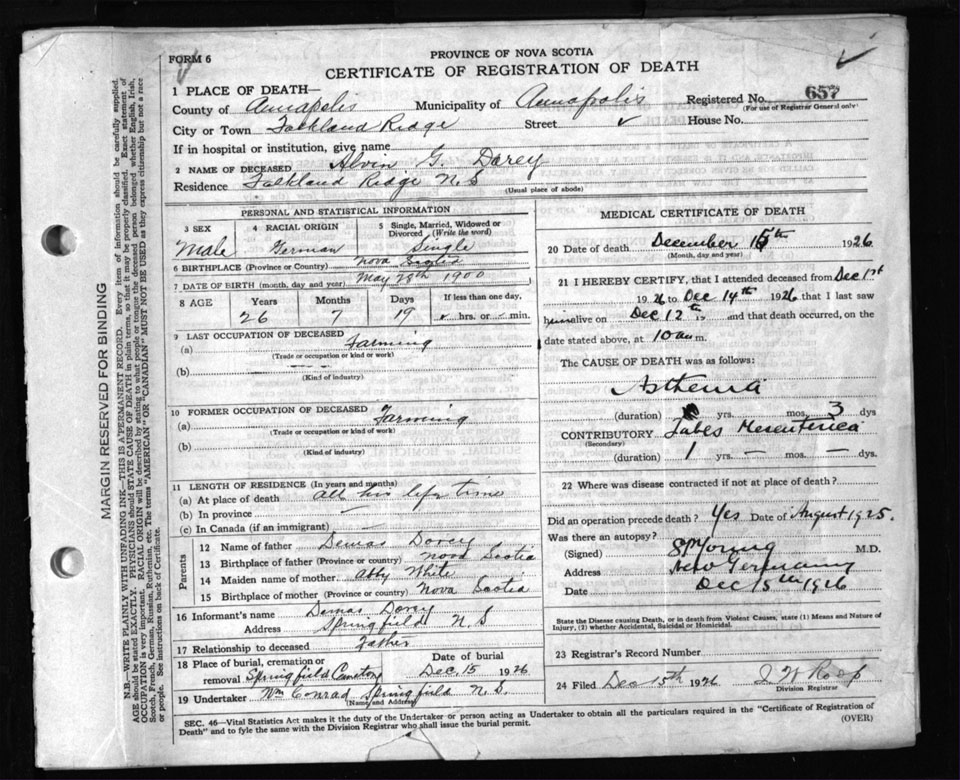 FORM 6
PROVINCE OF NOVA SCOTIA
CERTIFICATE OF REGISTRATION OF DEATH
1 PLACE OF DEATH—
Registered No. 657
(For use of Registrar General only)
County of Annapolis Municipality of Annapolis
City or Town Falkland Ridge Street ✓ House No.
If in hospital or institution, give name
2 NAME OF DECEASED Alvin G. Darey
Residence Falkland Ridge N.S
(Usual place of abode)
PERSONAL AND STATISTICAL INFORMATION
3 SEX 4 RACIAL ORIGIN 5 Single, Married, Widowed or Divorced (Write the word)
Male German Single
6 BIRTHPLACE (Province or Country) Nova Scotia
7 DATE OF BIRTH (month, day and year) May 28th 1900
8 AGE Years Months Days If less than one day,
26 7 19 ✓ hrs. or – min.
9 LAST OCCUPATION OF DECEASED
(a) Farming
(Trade or occupation or kind or work)
(b) — – —
(Kind of industry)
10 FORMER OCCUPATION OF DECEASED
(a) Farming
(Trade or occupation or kind or work)
(b)
(Kind of industry)
11 LENGTH OF RESIDENCE (In years and months)
(a) At place of death all his life time
(b) In province —
(c) In Canada (if an immigrant) —
Parents
12 Name of father Demas Dorey
13 Birthplace of father (Province or country) Nova Scotia
14 Maiden name of mother Abby White
15 Birthplace of mother (Province or country) Nova Scotia
16 Informant's name Demas Dorey
Address Springfield N S
17 Relationship to deceased Father
18 Place of burial, cremation or removal Springfield Cemetery Date of burial Dec. 15 1926
19 Undertaker Wm Conrad Springfield N.S.
(Name and Address)
MEDICAL CERTIFICATE OF DEATH
20 Date of death December 15th 1926
(Month, day and year)
21 I HEREBY CERTIFY, that I attended deceased from Dec 1st
1926 to Dec 14th 1926 that I last saw
him alive on Dec 12th 19 and that death occurred, on
date stated above, at 10 am m.
The CAUSE OF DEATH was as follows:
Asthenia
(duration) yrs. mos. 3 dys
CONTRIBUTORY Tabes Mesenterica
(Secondary)
(duration) 1 yrs. — mos. — dys.
22 Where was disease contracted if not at place of death?
Did an operation precede death? Yes Date of August 1925.
Was there an autopsy?
(Signed) SP Young M.D.
Address New Germany
Date Dec 15th 1926
State the Disease causing Death, or in death from Violent Causes, state (1) Means and Nature of Injury, (2) whether Accidental, Suicidal or Homicidal.
23 Registrar's Record Number
24 Filed Dec 15th 1926 J W Roop
Division Registrar
SEC. 46—Vital Statistics Act makes it the duty of the Undertaker or person acting as Undertaker to obtain all the particulars required in the "Certificate of Registration of
Death" and to fyle the same with the Division Registrar who shall issue the burial permit. (OVER)
MARGIN RESERVED FOR BINDING
N.B.—WRITE PLAINLY WITH UNFADING INK—THIS IS A PERMANENT RECORD. Every item of information should be carefully supplied.
AGE should be stated EXACTLY. PHYSICIANS should STATE CAUSE OF DEATH in plain terms, so that it may be properly classified. Exact statement of
OCCUPATION is very important. RACIAL ORIGIN will be described by stating to what people or tongue the deceased person belonged whether English, Irish,
Scotch, French, German, Russian, Ruthenian, etc. The terms "AMERICAN" OR "CANADIAN" MUST NOT BE USED as they express citizenship but not a race
or people. See instructions on back of Certificate.